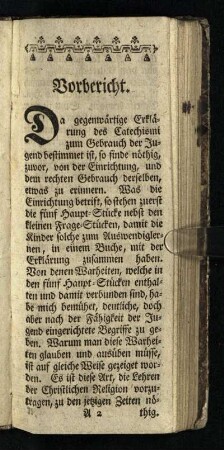 Vorbericht.
Da gegenwärtige Erklä-
rung des Catechismi
zum Gebrauch der Ju-
gend bestimmet ist, so finde nöthig,
zuvor, von der Einrichtung, und
dem rechten Gebrauch derselben,
etwas zu erinnern. Was die
Einrichtung betrift, so stehen zuerst
die fünf Haupt-Stücke nebst den
kleinen Frage-Stücken, damit die
Kinder solche zum Auswendigler-
nen, in einem Buche, mit der
Erklärung zusammen haben.
Von denen Warheiten, welche in
den fünf Haupt-Stücken enthal-
ten und damit verbunden sind, ha-
be mich bemühet, deutliche, doch
aber nach der Fähigkeit der Ju-
gend eingerichtete Begriffe zu ge-
ben. Warum man diese Warhei-
ten glauben und ausüben müsse,
ist auf gleiche Weise gezeiget wor-
den. Es ist diese Art, die Lehren
der Christlichen Religion vorzu-
tragen, zu den jetzigen Zeiten nö
A 2 thig.